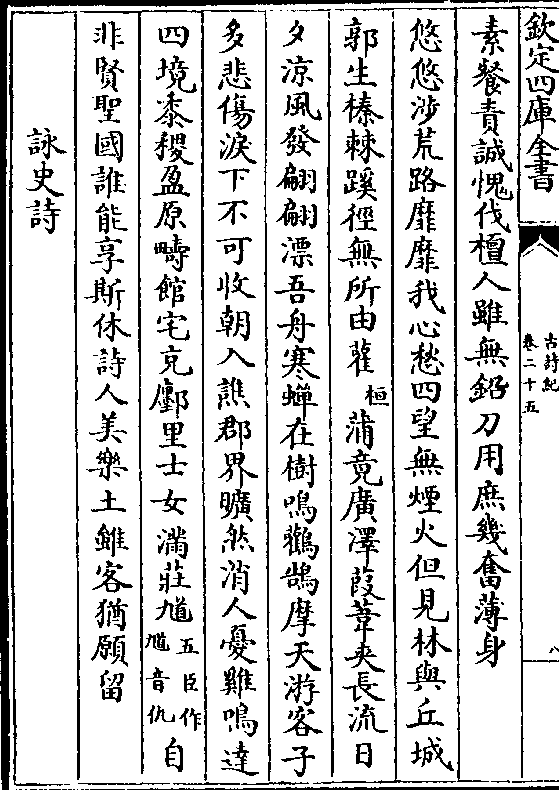 欽定四庫全書
古詩紀
卷二十五
八
素餐責誠愧伐檀人雖無鉛刀用庶幾奮薄身
悠悠涉荒路靡靡我心愁四望無煙火但見林與丘城
郭生榛棘蹊徑無所由雚桓蒲竟廣澤葭葦夾長流日
夕涼風發翩翩漂吾舟寒蟬在樹鳴鸛鵠摩天游客子
多悲傷淚下不可收朝入譙郡界曠然消人憂雞鳴達
四境黍稷盈原疇館宅充鄽里士女滿莊馗五臣作馗音仇自
非賢聖國誰能享斯休詩人美樂土雖客猶願留
詠史詩